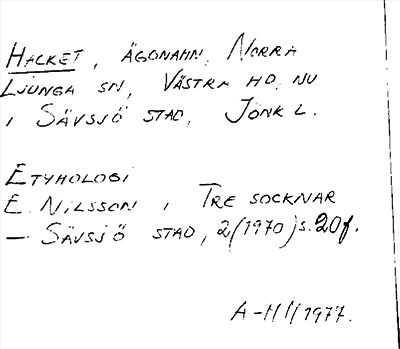 HACKET, ÄGONAMN, NORRA
LJUNGA SN, VÄSTRA HD, NU
I SÄVSJÖ STAD, JÖNK L.
ETYMOLOGI
E. NILSSON I TRE SOCKNAR
– SÄVSJÖ STAD, 2 (1970) s. 20f.
1977.